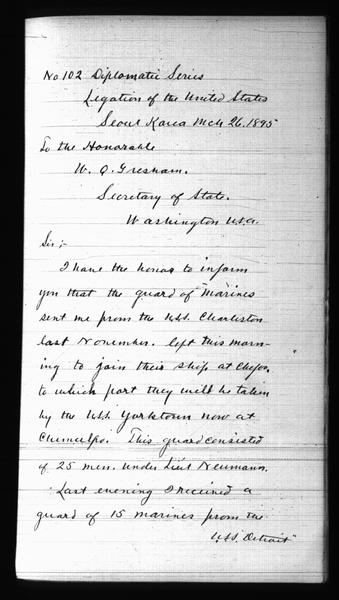 No 102 Diplomatic Series
Legation of the United States
Seoul Korea Mch 26. 1895
To the Honorable
W. Q. Gresham.
Secretary of State.
Washington U.S.A.
Sir;-
I have the honor to inform
you that the guard of Marines
sent me from the U.S.S. Charleston
last November. left this morn-
ing to join their ship at Chefoo,
to which port they will be taken
by the U.S.S. Yorktown now at
Chemulpo. This guard consisted
of 25 men. under Lieut Neumann.
Last evening I received a
guard of 15 marines from the
U.S.S. "Detroit"